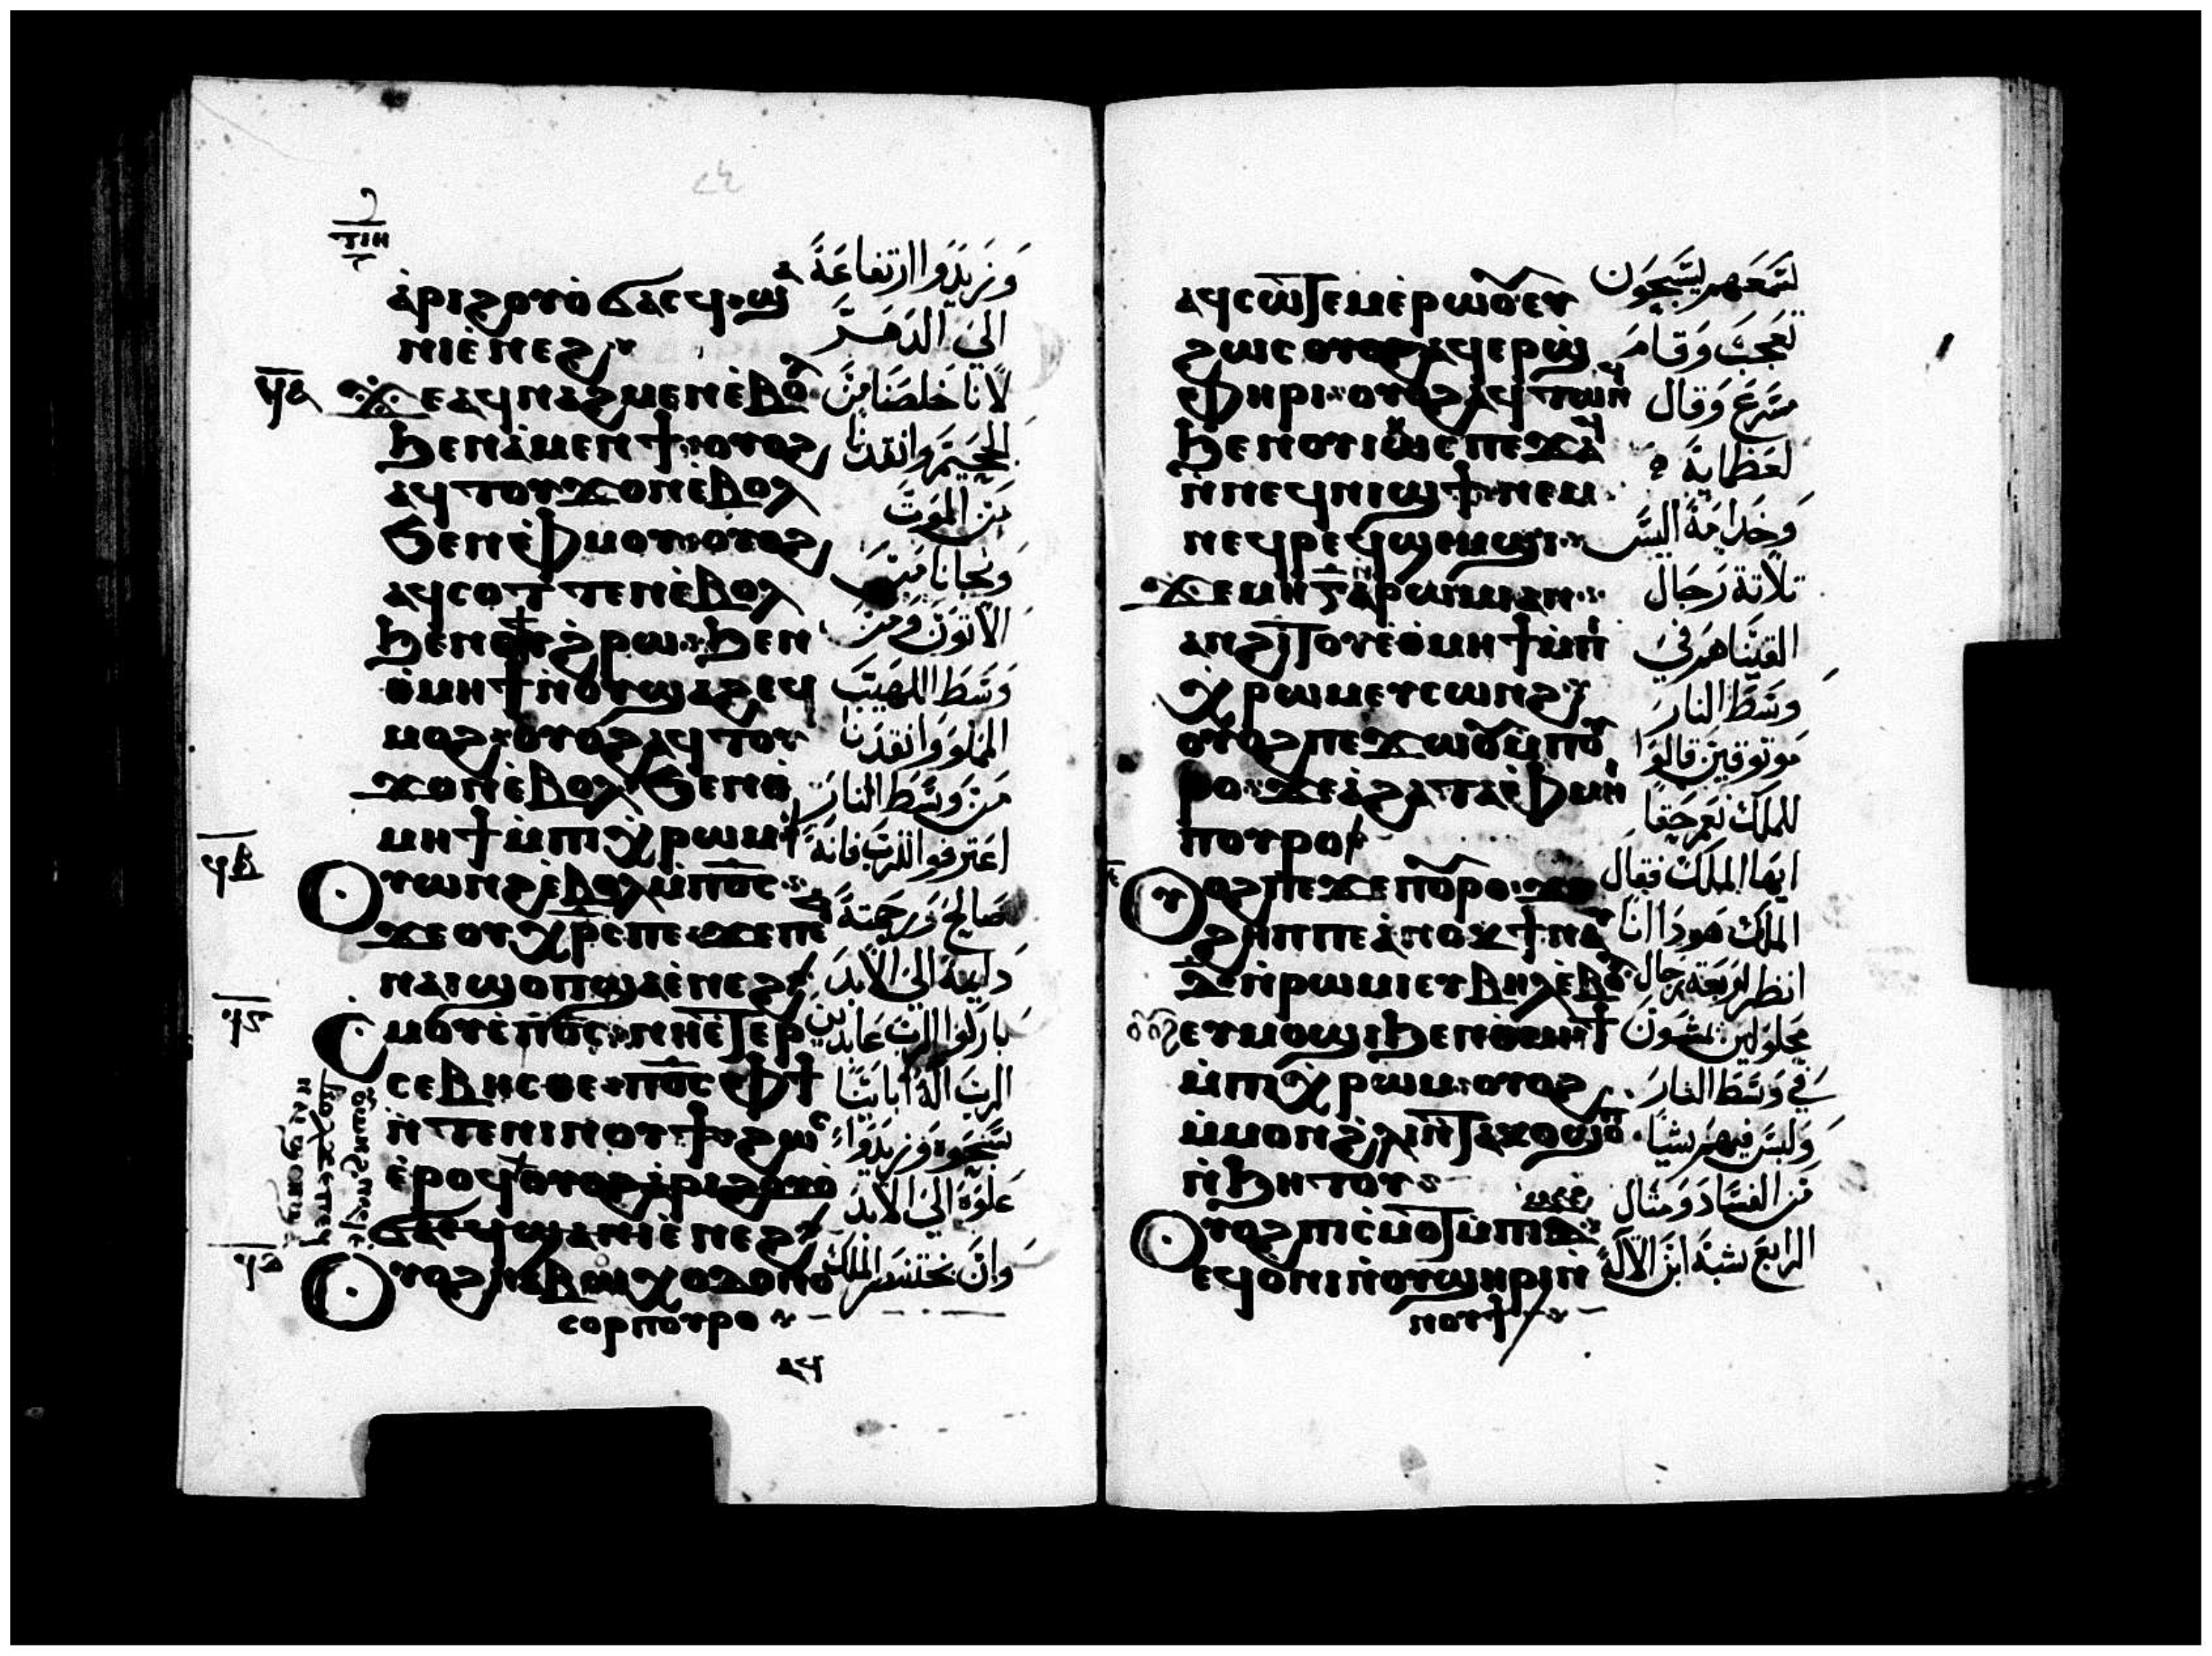 ⲁ̀ⲣⲓϩⲟⲩⲟ̀ ϭⲁⲥϥ ϣⲁ
ⲛⲓⲉ̀ⲛⲉϩ
ϫⲉ ⲁϥⲛⲁϩⲙⲉⲛ ⲉ̀ⲃⲟⲗ
ϧⲉⲛ ⲁ̀ⲙⲉⲛϯ ⲟⲩⲟϩ
ⲁϥⲧⲟⲩϫⲟⲛ ⲉ̀ⲃⲟⲗ
ϧⲉⲛ ⲉ̀ⲫⲙⲟⲩ ⲟⲩⲟϩ
ⲁϥⲥⲟⲧⲧⲉⲛ ⲉ̀ⲃⲟⲗ
ϧⲉⲛ ⲟⲩϩⲣⲱ ϧⲉⲛ
ⲑ̀ⲙⲏϯ ⲛ̀ⲟⲩϣⲁϩ ⲉϥ
ⲙⲟϩ ⲟⲩⲟϩ ⲁϥⲧⲟⲩ
ϫⲟⲛ ⲉ̀ⲃⲟⲗ ϧⲉⲛ ⲑ̀
ⲙⲏϯ ⲙ̀ⲡⲓⲭ̀ⲣⲱⲙ
ⲟⲩⲱⲛϩ ⲉ̀ⲃⲟⲗ ⲙ̀ⲡⲟ̅ⲥ̅
ϫⲉ ⲟⲩⲭⲣⲥ ⲡⲉ ϫⲉ ⲡⲉϥ
ⲛⲁⲓ ϣⲟⲡ ϣⲁ ⲉ̀ⲛⲉϩ
ⲥⲙⲟⲩ ⲉ̀ⲡⲟ̅ⲥ̅ ⲛⲏⲉⲧⲉⲣ
ⲥⲉⲃⲏⲥⲑⲉ ⲡⲟ̅ⲥ̅ ⲫϯ
ⲛ̀ⲧⲉ ⲛⲓⲛⲟⲩϯ ϩⲱⲥ
ⲉ̀ⲣⲟϥ ⲟⲩⲟϩ ⲁⲣⲓϩⲟⲩⲟ̀
ϭⲁⲥϥ ϣⲁ ⲛⲓⲉ̀ⲛⲉϩ
ⲟⲩⲟϩ ⲛⲁⲃⲟⲩⲭⲟⲇⲟⲛⲟ
ⲥⲟⲣ ⲡⲟⲩⲣⲟ
ⲁϥ
وَنزيدوا ارتفاعة
الي الدهر
لانا خلصنا من
الجحيم وانقدنا
من الموت
ونجانا من
الاتون ومن
وسط اللهيب
المملو وانقدنا
من وسط النار
اعترفوا للرب فانه
صالح ورحمته
دايمة الي الابد
باركوا الرب عابدين
الرب اله ابايتنا
سبحوه وزيدوا
علوه الي الابد
وان بختنصر الملك
ⲁϥⲥⲱⲧⲉⲙ ⲉ̀ⲣⲱⲟⲩ ⲉⲩ
ϩⲱⲥ ⲟⲩⲟϩ ⲁϥⲉⲣϣ
ⲫⲏⲣⲓ ⲟⲩⲟϩ ⲁϥⲧⲱⲛϥ
ϧⲉⲛ ⲟⲩⲓⲱⲥ ⲡⲉϫⲁϥ
ⲛ̀ⲛⲉϥⲛⲓϣϯ ⲛⲉⲙ
ⲛⲉϥⲣⲉϥϣⲉⲙϣⲓ
ϫⲉ ⲙⲏ ⲅ̅ ⲛ̀ⲣⲱⲙⲓ ⲁⲛ
ⲁⲛϩⲓⲧⲟⲩ ⲉ̀ⲑⲙⲏϯ ⲙ̀ⲡⲓ
ⲭ̀ⲣⲱⲙ ⲉⲩⲥⲱⲛϩ
ⲟⲩⲟϩ ⲡⲉϫⲱⲟⲩ ⲙ̀ⲡⲟⲩ
ⲣⲟ ϫⲉ ⲁ̀ϩⲁ ⲧⲁⲫⲙⲏⲓ
ⲡⲟⲩⲣⲟ
ⲟⲩⲟϩ ⲡⲉϫⲉ ⲡⲟⲩⲣⲟ ϫⲉ
ϩⲏⲡⲡⲉ ⲁ̀ⲛⲟⲕ ϯⲛⲁⲩ
ⲇ̅ ⲛ̀ⲣⲱⲙⲓ ⲉⲩⲃⲏⲗ ⲉ̀ⲃⲟⲗ
ⲟⲩⲟϩ ⲉⲩⲙⲟϣⲓ ϧⲉⲛ ⲑⲙⲏϯ
ⲙ̀ⲡⲓⲭ̀ⲣⲱⲙ ⲟⲩⲟϩ
ⲙ̀ⲙⲟⲛ ϩⲗⲓ ⲛ̀ⲧⲁⲕⲟ ϣⲟⲡ
ⲛ̀ϧⲏⲧⲟⲩ
ⲟⲩⲟϩ ⲡⲓⲥ̀ⲙⲟⲧ ⲙ̀ⲡⲓⲇ̅
ⲉϥⲟ̀ⲛⲓ ⲛ̀ⲟⲩϣⲏⲣⲓ ⲛ̀
ⲛⲟⲩϯ
لسمعهم يسبحون
تعجب وقام
مسرع وقال
لعظمايه
وخدامه اليس
تلاتة رجال
القيناهم في
وسط النار
موتوقين قالوا
للملك نعم حقا
ايها الملك فقال
الملك هودا انا
انظر اربعة رجال
محلولين يمشون
في وسط النار
وليس فيهم شيا
من الفساد ومثال
الرابع شبة ابن الالة